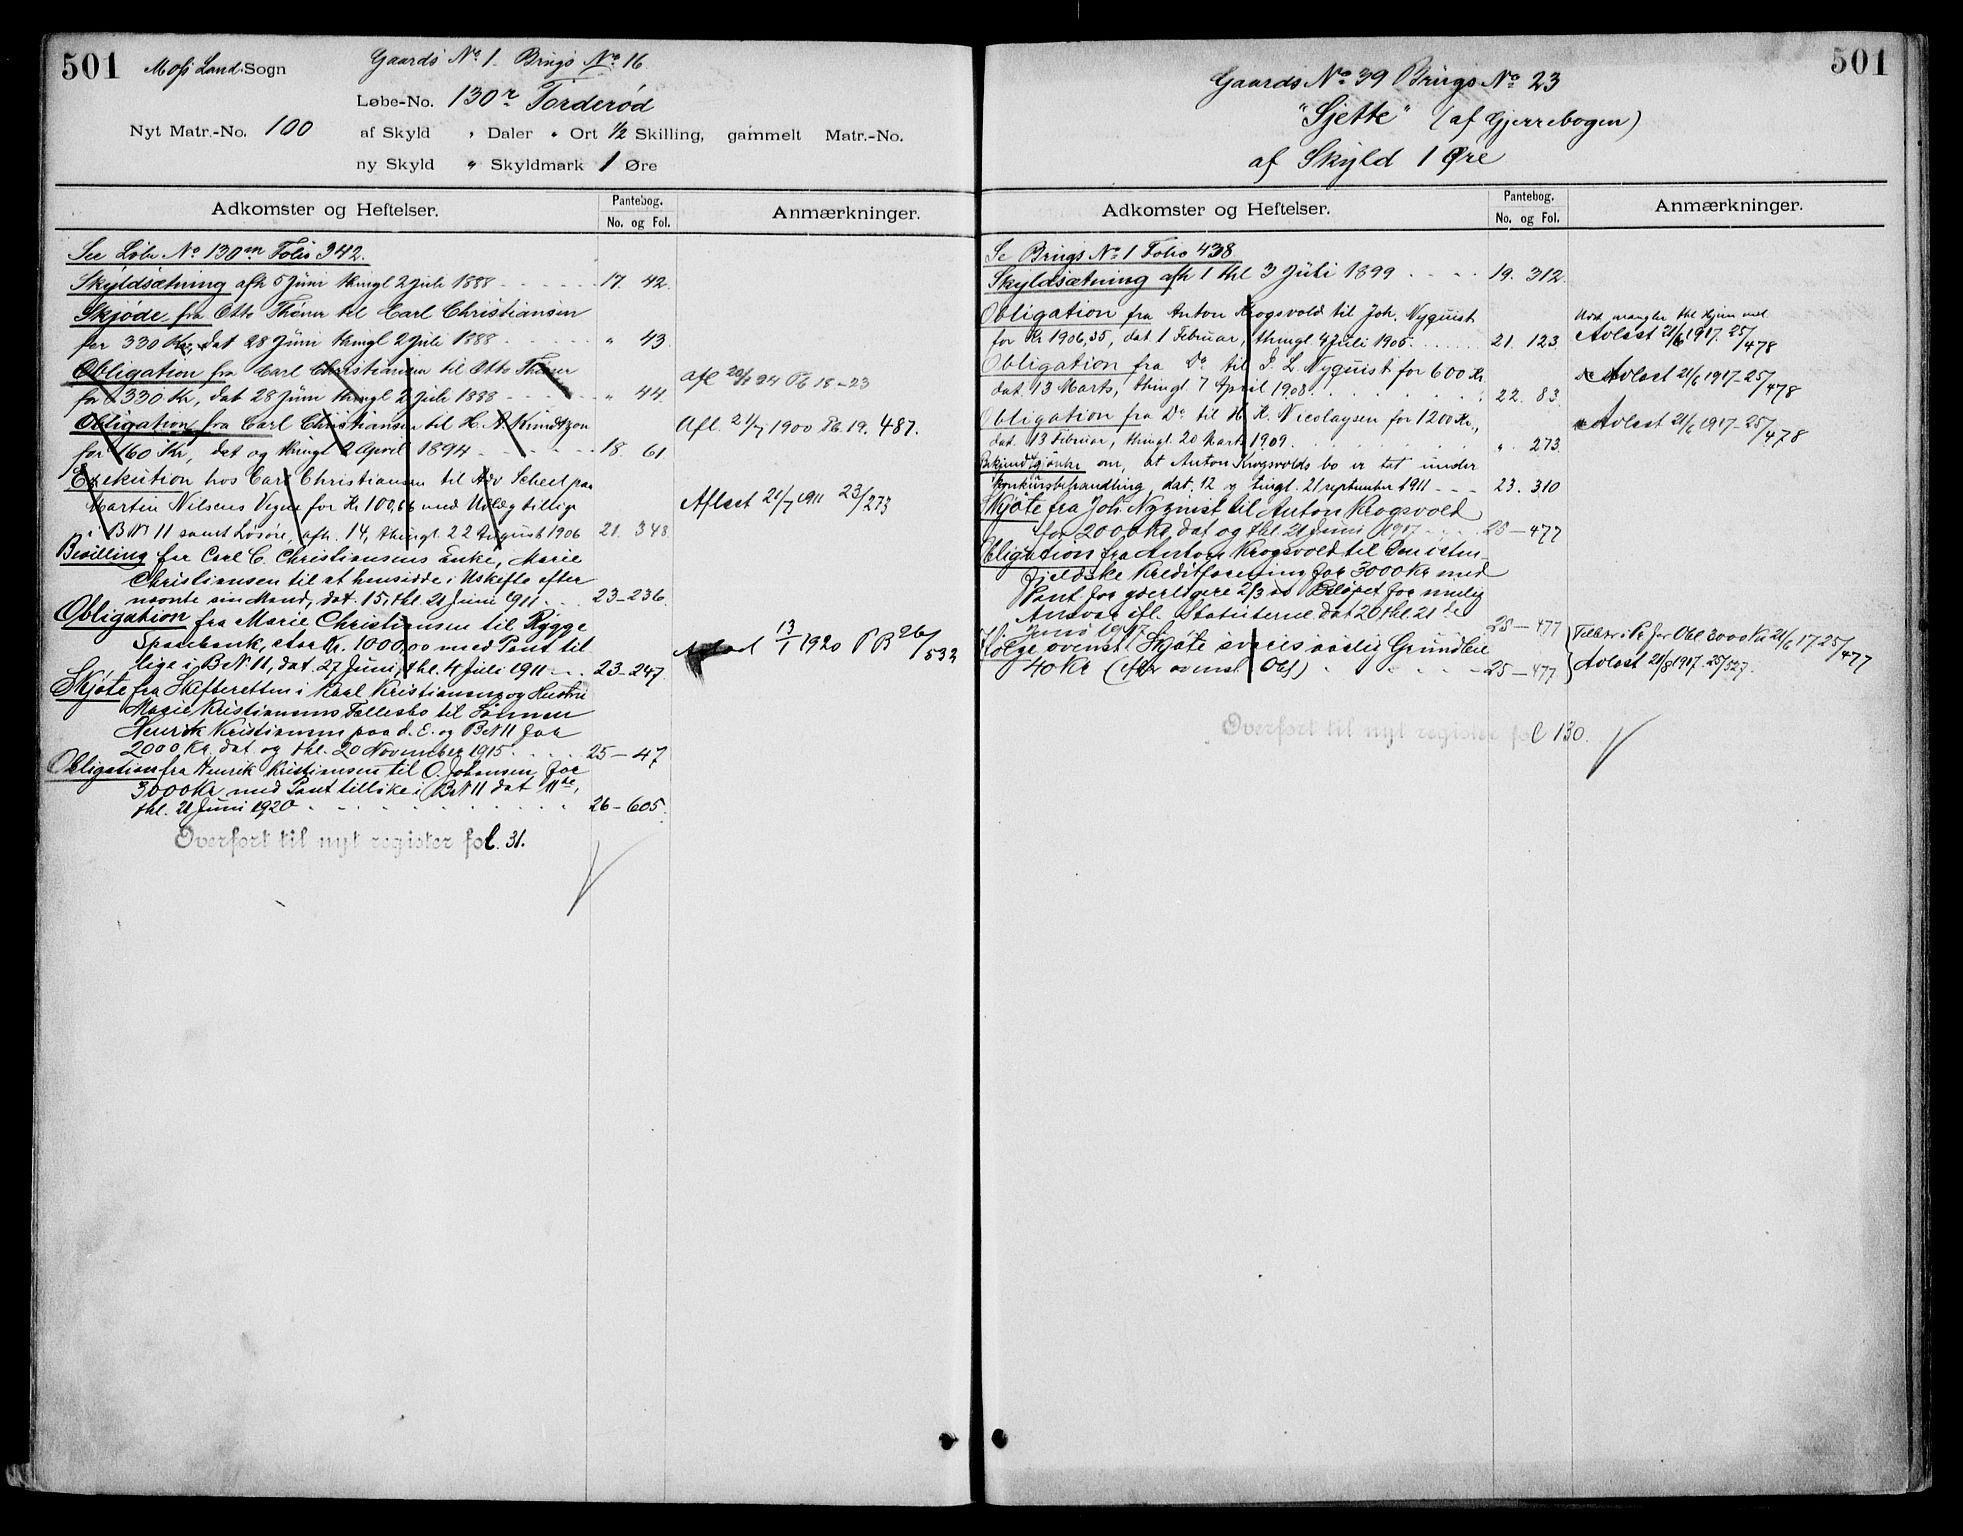 501
Moss Land Sogn
Gaards No 1. Brugs No 16
Løbe-No. 130r Torderød
Nyt Matr.-No. 100 af Skyld " Daler " Ort 1/2 Skilling, gammelt Matr.-No.
ny Skyld " Skyldmark 1 Øre
Adkomster og Heftelser.
Pantebog.
No. og Fol.
Anmærkninger.
See Løbe No 130m Folio 342.
Skyldsætning afh 5 Juni thingl 2 Juli 1888 17. 42.
Skjøde fra Otto Thøner til Carl Christiansen
for 330 Kr, dat 28 Juni thingl 2 Juli 1888 " 43.
Obligation fra Carl Christiansen til Otto Thøner
for 330 Kr, dat 28 Juni thingl 2 Juli 1888 " 44. afl 20/1 94 Pb 18-23
Obligation fra Carl Christiansen til H. A. Knudtzon
for 160 Kr, dat og thingl 2 April 1894 18. 61 Afl. 21/7 1900 Pb. 19. 487.
Exekution hos Carl Christiansen til Adv Scheel paa
Martin Nilsens Vegne for Kr 100,66 med Udlæg tillige
i B No 11 samt Løsøre, afh. 14, thingl. 22 August 1906 21. 348. Aflæst 21/7 1911 23/273
Bevilling for Carl C. Christiansens Enke, Marie
Christiansen til at hensidde i Uskifte efter
nævnte sin Mand, dat. 15, thl. 21 Juni 1911 23-236.
Obligation fra Marie Christiansen til Rygge
Sparebank, stor Kr. 1000,00 med Pant til
lige i B No 11, dat. 27 Juni, thl. 4 Juli 1911 23-247. 13/1 1920 P B 26/533
Skjøte fra Skifteretten i Karl Kristiansens og Hustru
Marie Kristiansens Fellesbo til Sønnen
Henrik Kristiansen paa d. E. og B No 11 for
2000 Kr. dat. og thl. 20 November 1915. 25-47
Obligation fra Henrik Kristiansen til O. Johansen for
3000 Kr med Pant tillike i B No 11 dat 11te,
thl. 21 Juni 1920 26-605.
Overført til nyt register fol. 31.
501
Gaards No 39 Brugs No 23
"Sjette" (af Gjerrebogen)
af Skyld 1 Øre
Adkomster og Heftelser.
Pantebog.
No. og Fol.
Anmærkninger.
Se Brugs No 1 Folio 438
Skyldsætning afh 1 thl 3 Juli 1899 19. 312.
Obligation fra Anton Krogsvold til Joh. Nyquist
for Kr 1906,55, dat 1 Februar, thingl 4 Juli 1905. 21. 123. Avlæst 21/6 1917. 25/478
Obligation fra Do til J. L. Nyquist for 600 Kr
dat. 13 Marts, thingl. 7 April 1908. 22. 83. Avlæst 21/6 1917-25/478
Obligation fra Do til H. K. Nicolaysen for 1200 Kr.,
dat. 13 Februar, thingl. 20 Marts 1909. " 273. Avlæst 21/6 1917-25/478
Bekjendtgjørelse om, at Anton Krogsvolds bo er tat under
konkursbehandling, dat. 12 og tingl. 21 september 1911 23. 310
Skjøte fra Joh. Nyquist til Anton Krogsvold
for 2000 Kr, dat og thl. 21 Juni 1917 25-477
Obligation fra Anton Krogsvold til Den østen-
fjeldske Kreditforening for 3000 Kr med
Pant for yderligere 2/3 av Beløpet for mulig
Ansvar ifl. Statuterne dat 20 thl. 21de
Juni 1917 25-477
Ifølge ovenst. Skjøte svares aarlig Grundleie
40 Kr (efter ovenst. Obl) 25-477
for Obl 3000 Kr 21/6 17 25/477
Avlæst 21/8 1917. 25/527.
Overført til nyt register fol 130.